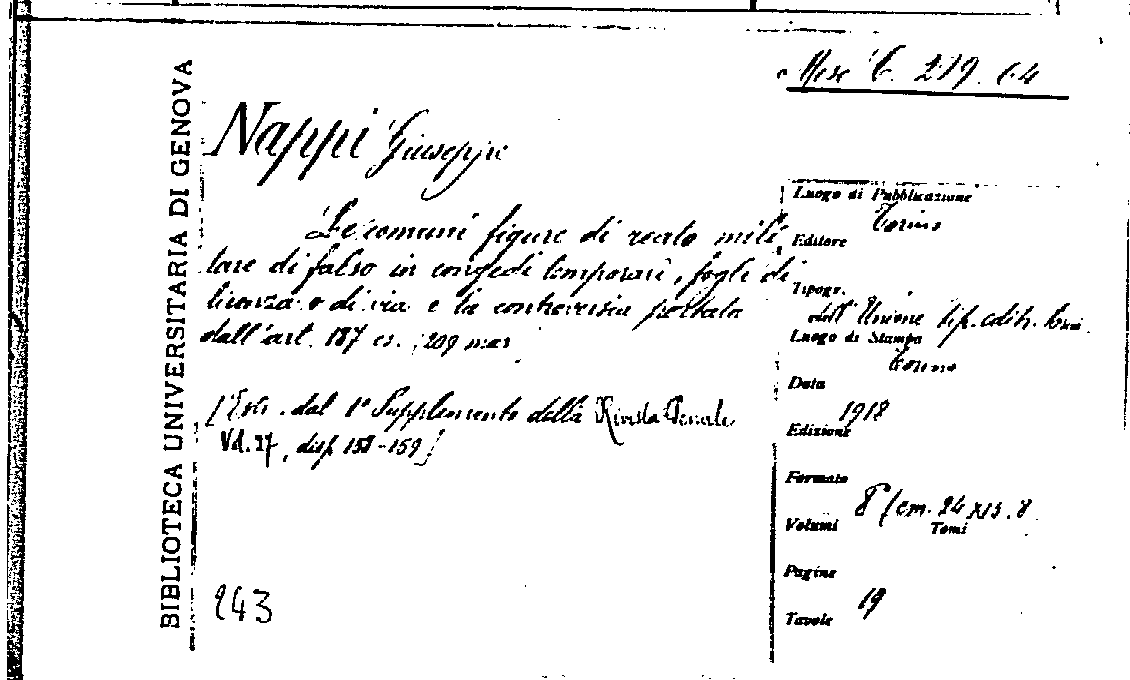 Misc C. 219. 64
BIBLIOTECA UNIVERSITARIA DI GENOVA
Nappi Giuseppe
Le comuni figure di reato mili
tare di falso in congedi temporari, fogli di
licenza o di via e la controversia portata
dall'art. 187 es. , 209 mar
[Estr. dal 1° Supplemento della Rivista Penale
Vol. 27, disp. 158-159]
243
Luogo di Pubblicazione
Torino
Editore
Tipogr.
dell'Unione tip. edit.
Luogo di Stampa
Torino
Data
1918
Edizione
Formato
8° (cm. 24 x 15.8
Volumi
Tomi
Pagine
19
Tavole